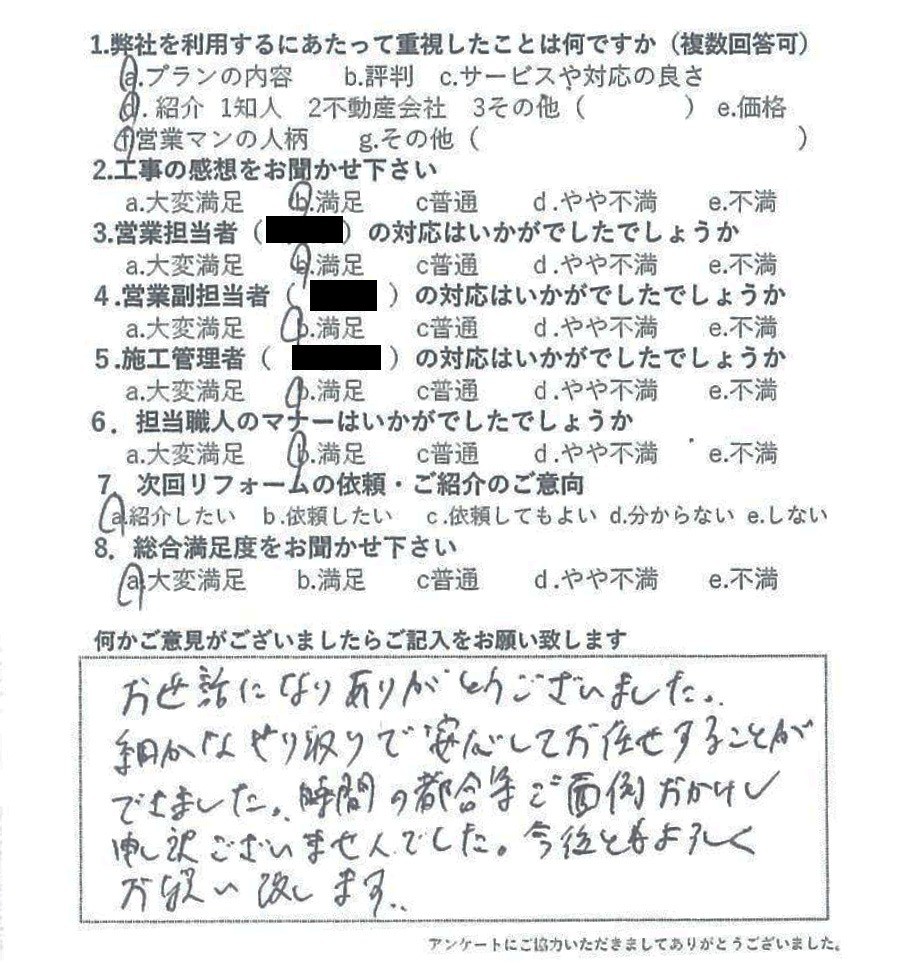 1.弊社を利用するにあたって重視したことは何ですか（複数回答可）
a.プランの内容　b.評判　c.サービスや対応の良さ
d.紹介　1知人　2不動産会社　3その他（　　　）e.価格
f営業マンの人柄　g.その他（　　　）
2.工事の感想をお聞かせ下さい
a.大変満足　b.満足　c普通　d.やや不満　e.不満
3.営業担当者（　　　）の対応はいかがでしたでしょうか
a.大変満足　b.満足　c普通　d.やや不満　e.不満
4.営業副担当者（　　　）の対応はいかがでしたでしょうか
a.大変満足　b.満足　c普通　d.やや不満　e.不満
5.施工管理者（　　　）の対応はいかがでしたでしょうか
a.大変満足　b.満足　c普通　d.やや不満　e.不満
6．担当職人のマナーはいかがでしたでしょうか
a.大変満足　b.満足　c普通　d.やや不満　e.不満
7．次回リフォームの依頼・ご紹介のご意向
a.紹介したい　b.依頼したい　c.依頼してもよい　d.分からない　e.しない
8．総合満足度をお聞かせ下さい
a.大変満足　b.満足　c普通　d.やや不満　e.不満
何かご意見がございましたらご記入をお願い致します
お世話になりありがとうございました。
細かなやり取りで安心してお任せすることが
できました。時間の都合等ご面倒おかけし
申し訳ございませんでした。今後ともよろしく
お願い致します。
アンケートにご協力いただきましてありがとうございました。